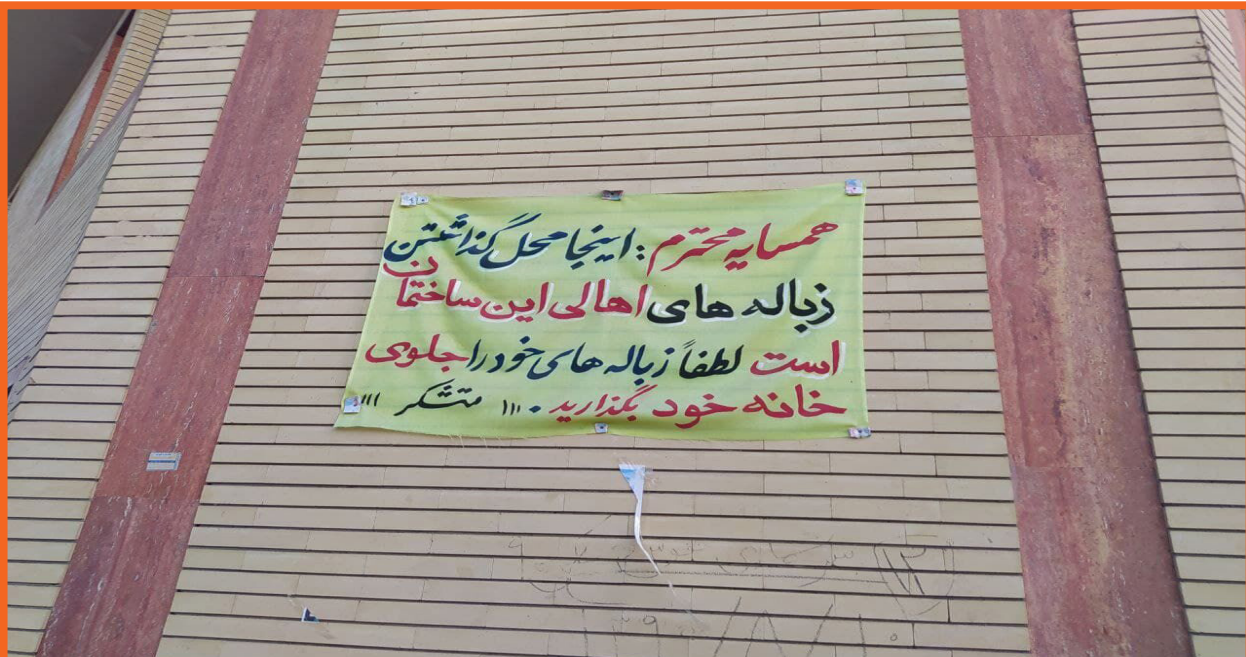 همسایه محترم : اینجا محل گذاشتن
زباله های اهالی این ساختمان
است لطفاً زباله های خود را جلوی
خانه خود بگذارید . ،،، متشکر ،،،